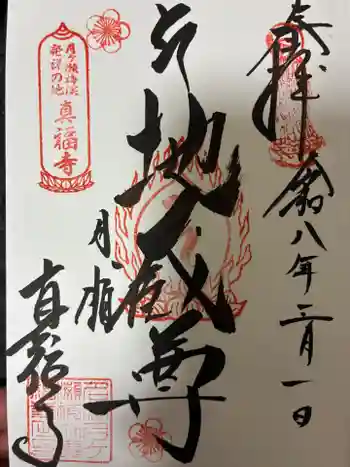 奉拝
令和八年二月一日
地蔵尊
月ヶ瀬梅渓
発祥の地
真福寺
月瀬
真福寺